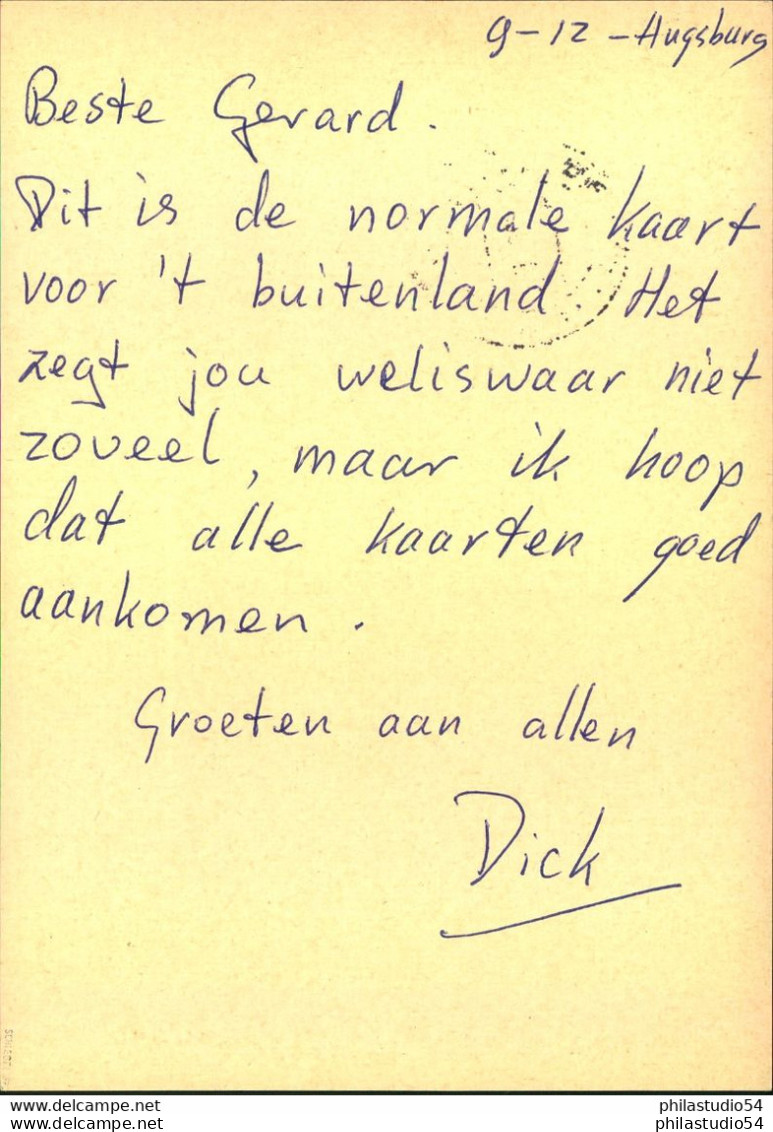 9-12 - Augsburg
Beste Gerard.
Dit is de normale kaart
voor 't buitenland. Het
zegt jou weliswaar niet
zoveel, maar ik hoop
dat alle kaarten goed
aankomen.
Groeten aan allen
Dick
www.delcampe.net philastudio54
www.delcampe.net philastudio54